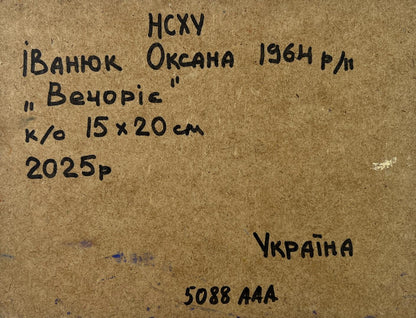 НСХУ
ІВАНЮК ОКСАНА 1964 р/н
„Вечоріє"
к/о 15 x 20 см
2025р
УКРАЇНА
5088 ААА